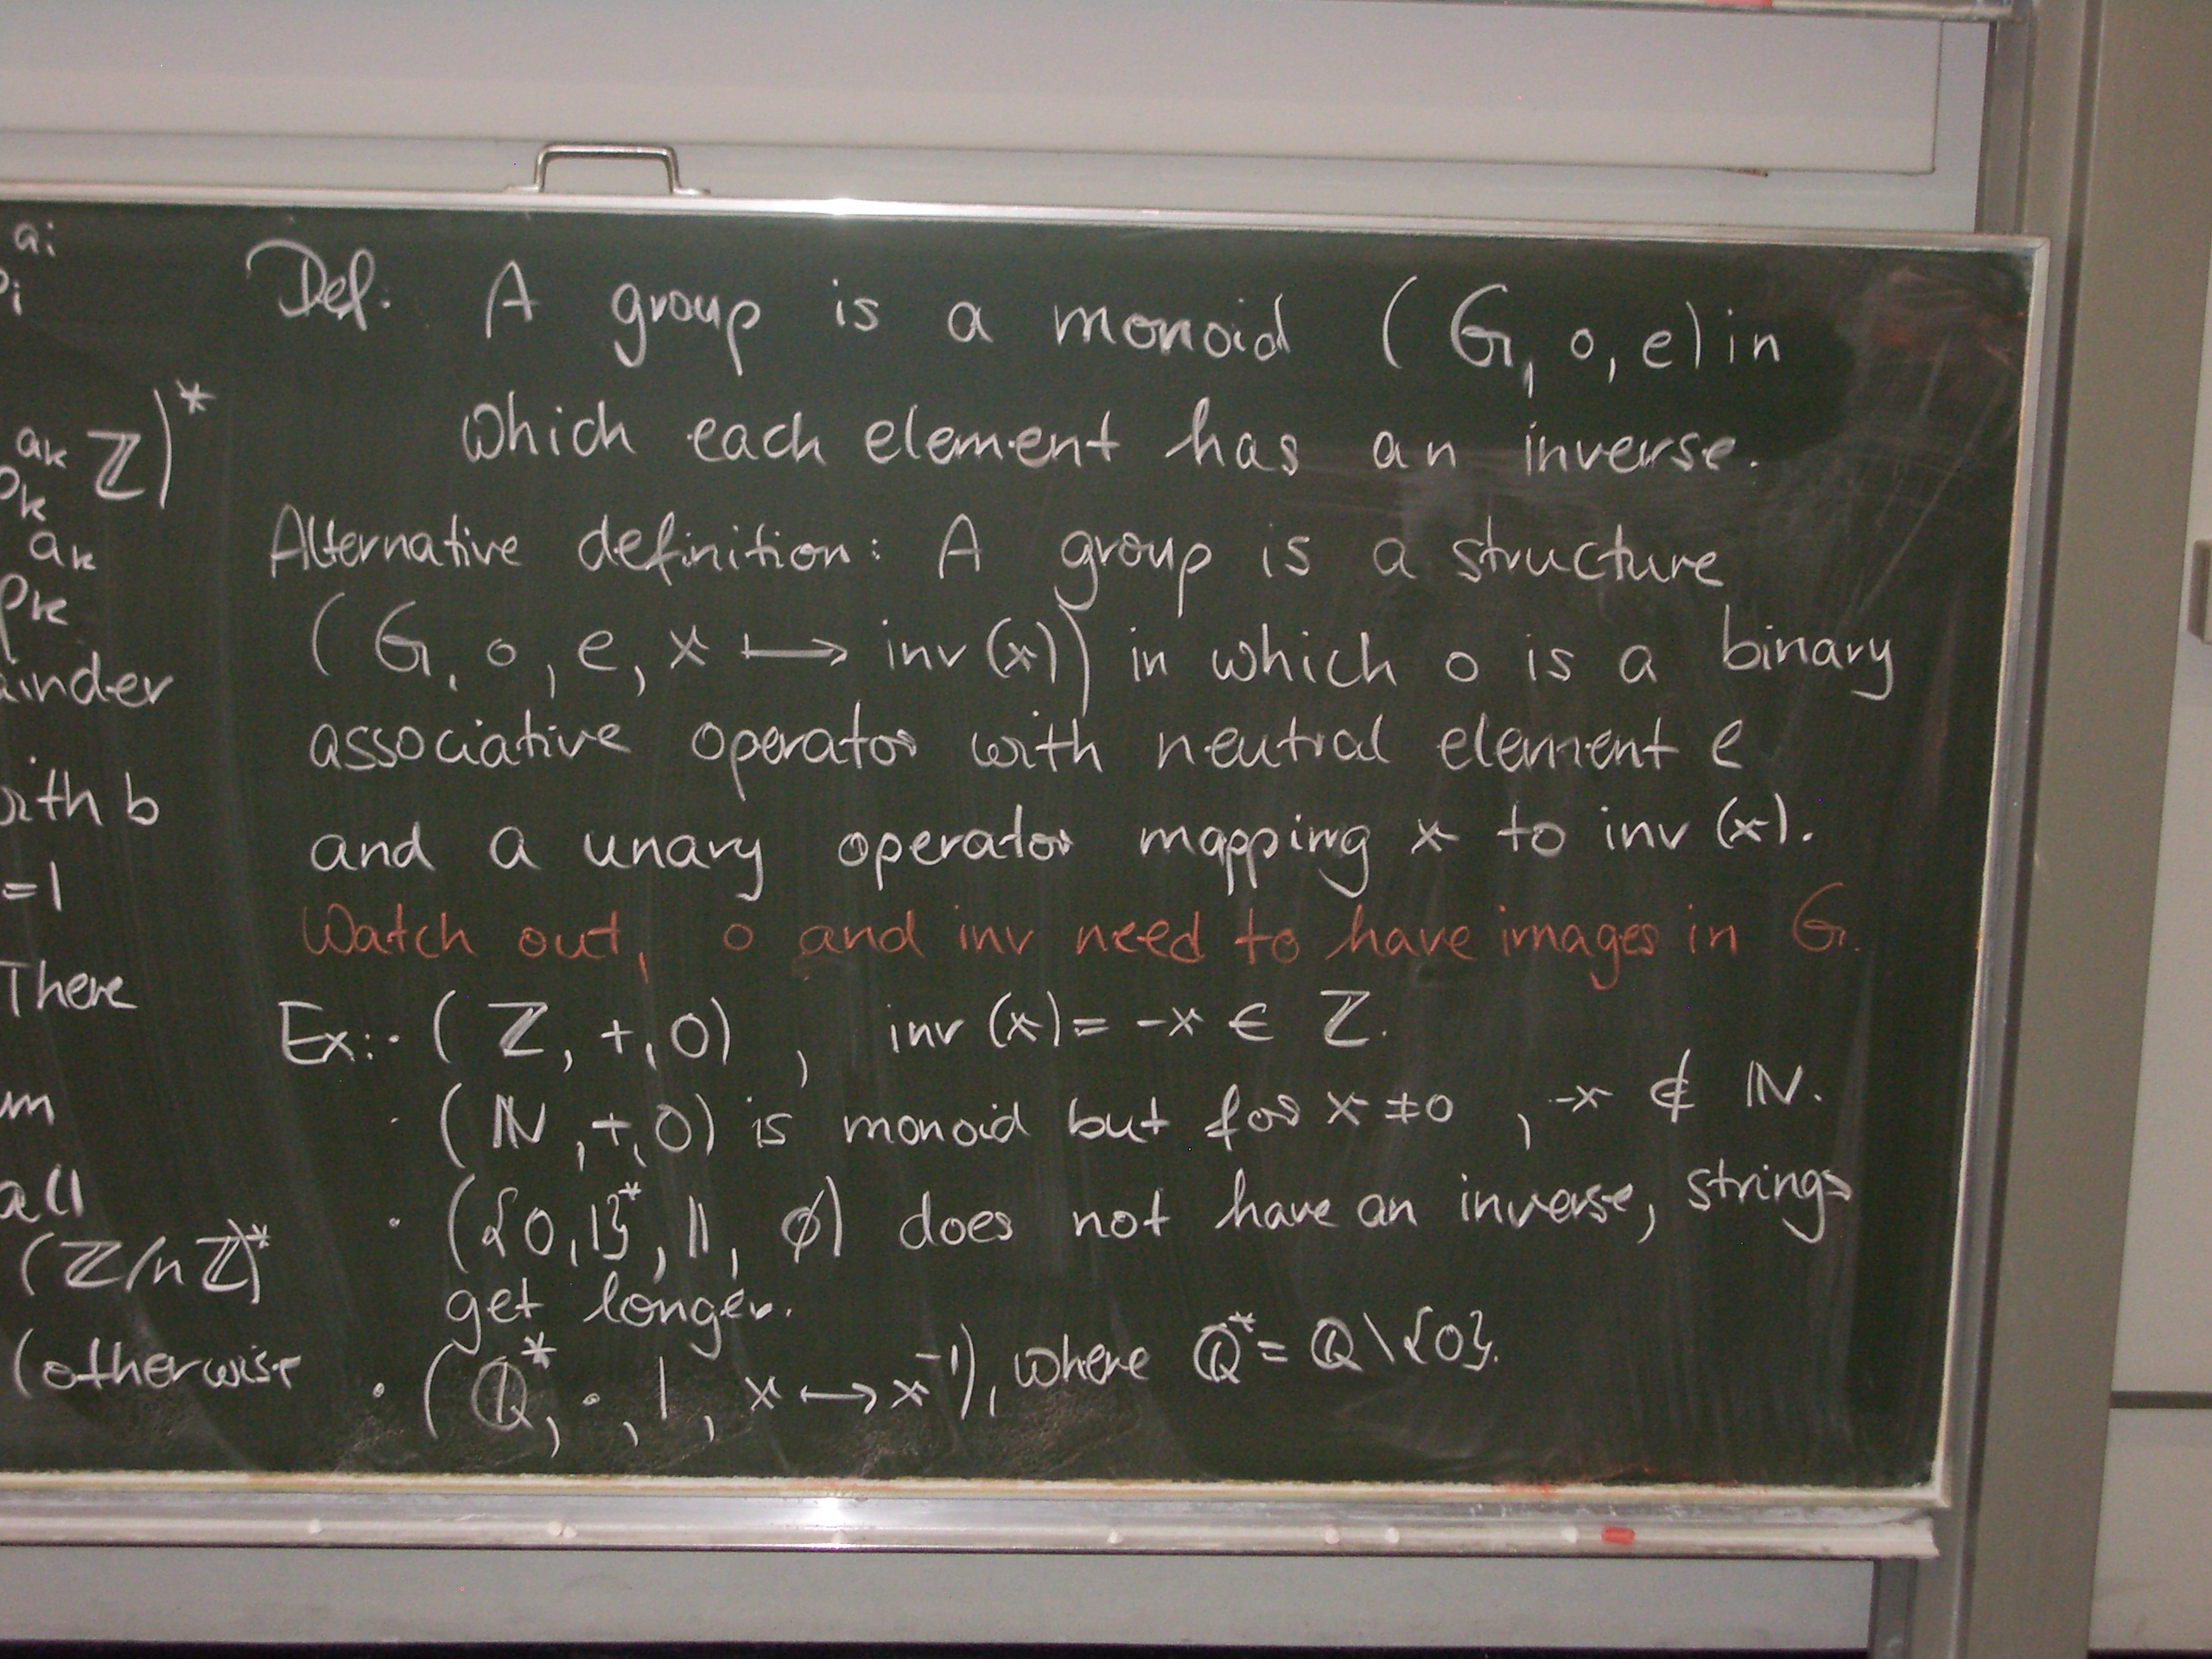 ai
pi
ak
pk Z)*
ak
pk
ainder
with b
=1
There
um
all
(Z/nZ)*
(otherwise
Def: A group is a monoid (G, ∘, e) in
which each element has an inverse.
Alternative definition: A group is a structure
(G, ∘, e, x ⟼ inv(x)) in which ∘ is a binary
associative operator with neutral element e
and a unary operator mapping x to inv(x).
Watch out, ∘ and inv need to have images in G.
Ex: · (ℤ, +, 0), inv(x) = -x ∈ ℤ.
· (ℕ, +, 0) is monoid but for x ≠ 0, -x ∉ ℕ.
· ({0,1}*, ||, ∅) does not have an inverse, strings
get longer.
· (ℚ*, ·, 1, x ⟼ x⁻¹), where ℚ* = ℚ\{0}.